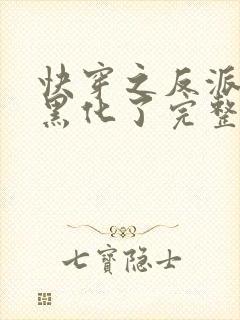 快穿之反派
黑化了完整
七寶隐士